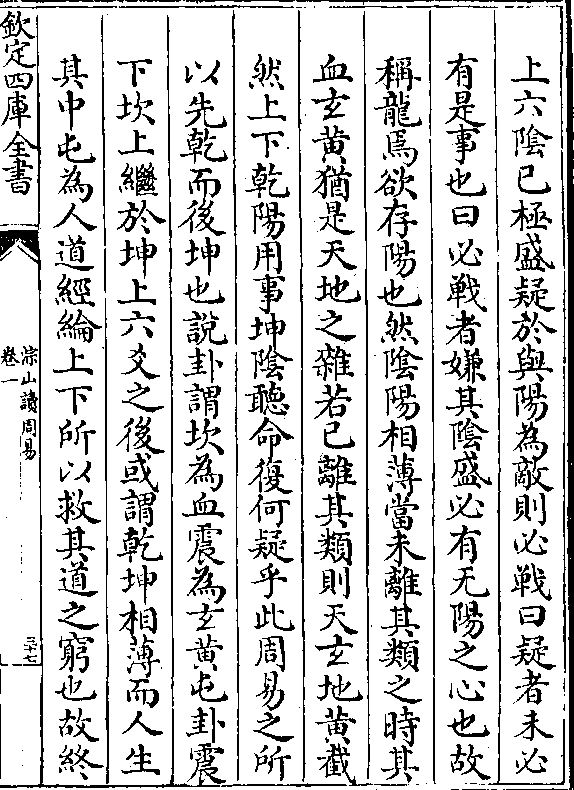 上六陰已極盛疑於與陽為敵則必戰曰疑者未必
有是事也曰必戰者嫌其陰盛必有无陽之心也故
稱龍焉欲存陽也然陰陽相薄當未離其類之時其
血玄黄猶是天地之雜若已離其類則天玄地黄截
然上下乾陽用事坤陰聽命復何疑乎此周易之所
以先乾而後坤也說卦謂坎為血震為玄黄屯卦震
下坎上繼於坤上六爻之後或謂乾坤相薄而人生
其中屯為人道經綸上下所以救其道之窮也故終
欽定四庫全書
淙山讀周易
卷一
三十七